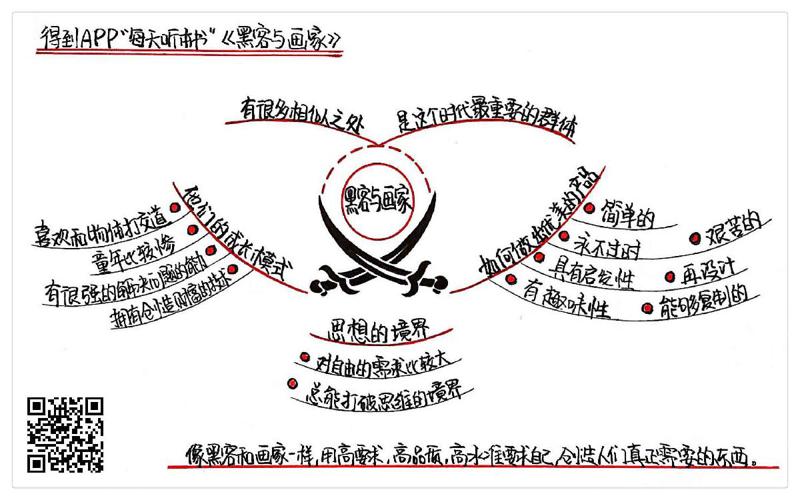 得到APP"每天听本书"《黑客与画家》
有很多相似之处
是这个时代最重要的群体
黑客与画家
他们的成长模式
喜欢和物体打交道
童年比较惨
有很强的解决问题的能力
拥有创造财富的技术
如何做出优美的产品
简单的
永不过时
具有启发性
有趣味性
艰苦的
再设计
能够复制的
思想的境界
对自由的需求比较大
总能打破思维的境界
像黑客和画家一样,用高要求,高品质,高水准要求自己,创造人们真正需要的东西。